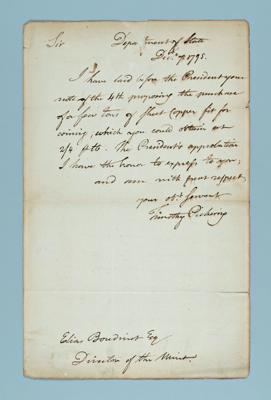 Sir
Department of State
Dec.r 7. 1795.
I have laid before the President your
note of the 4th proposing the purchase
of a few tons of sheet copper fit for
coining; which you could obtain at
2/4 The President's approbation
I have the honor to express to you;
and am with great respect,
your ob.t servant
Timothy Pickering
Elias Boudinot Esq
Director of the Mint.